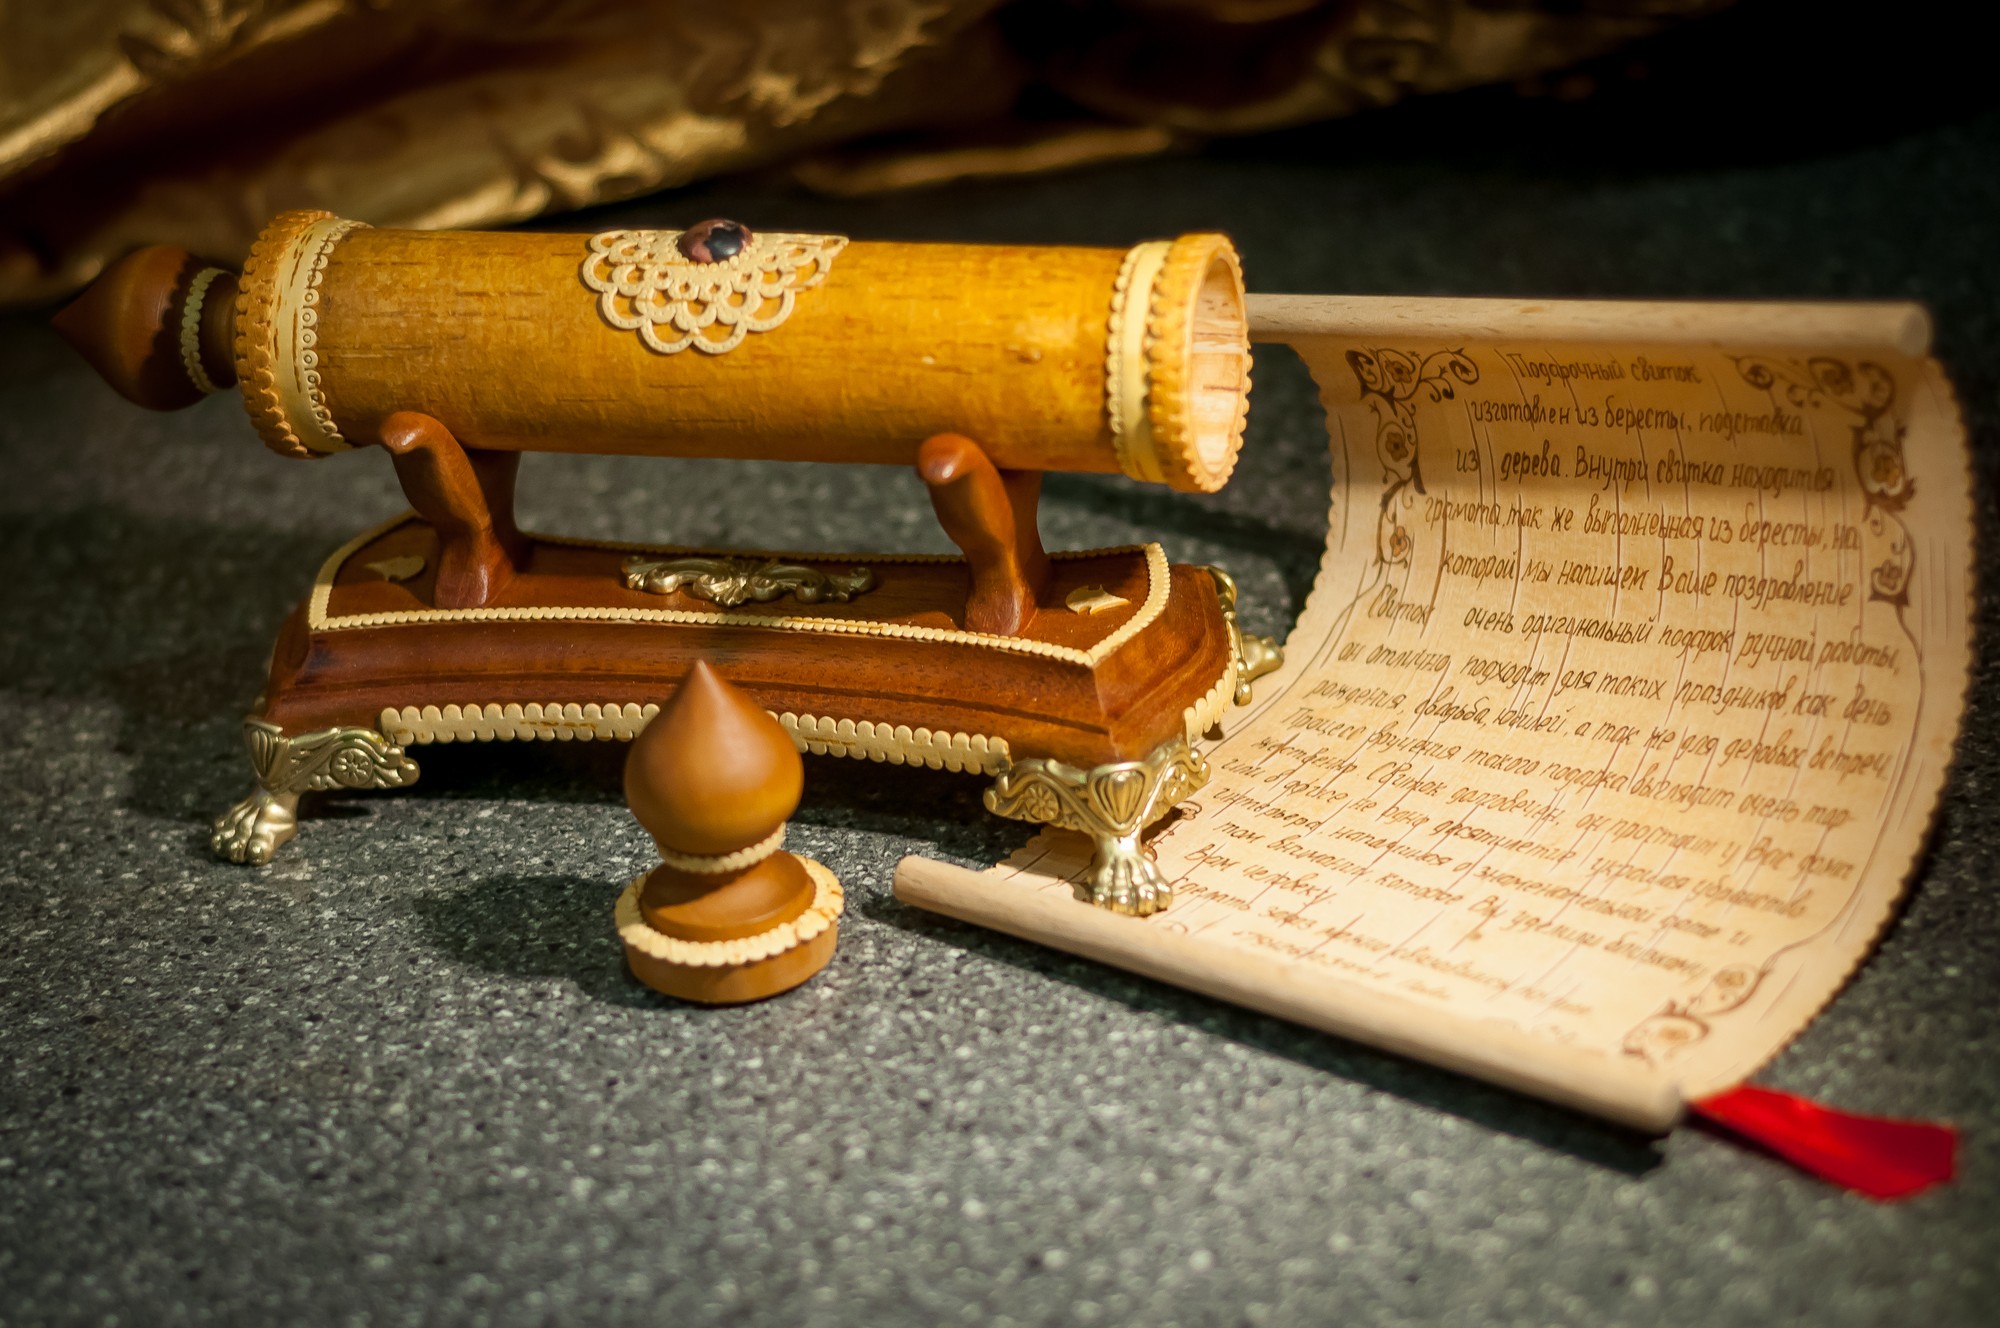 Подарочный свиток
изготовлен из бересты, подставка
из дерева. Внутри свитка находится
грамота, так же выполненная из бересты, на
которой мы напишем Ваше поздравление
Свиток очень оригинальный подарок ручной работы,
он отлично подходит для таких праздников, как день
рождения, свадьба, юбилей, а так же для деловых встреч.
Процесс вручения такого подарка выглядит очень тор-
жественно. Свиток долговечен, он простоит у Вас дома
или в офисе не одно десятилетие украшая убранство
интерьера, напоминая о знаменательной дате и
том внимании, которое Вы уделили близкому
Вам человеку.
сделать заказ можно